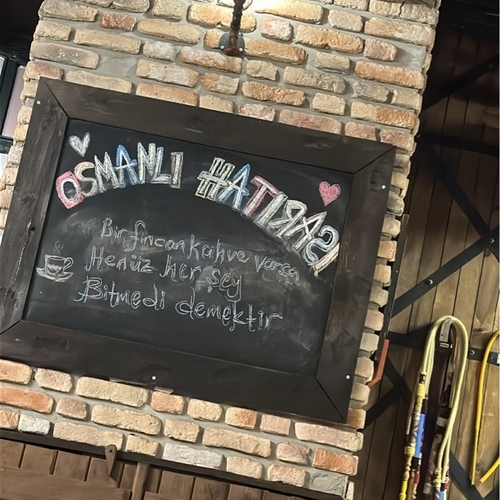 OSMANLI HATIRASI
Bir fincan kahve varsa
Henüz her şey
Bitmedi demektir